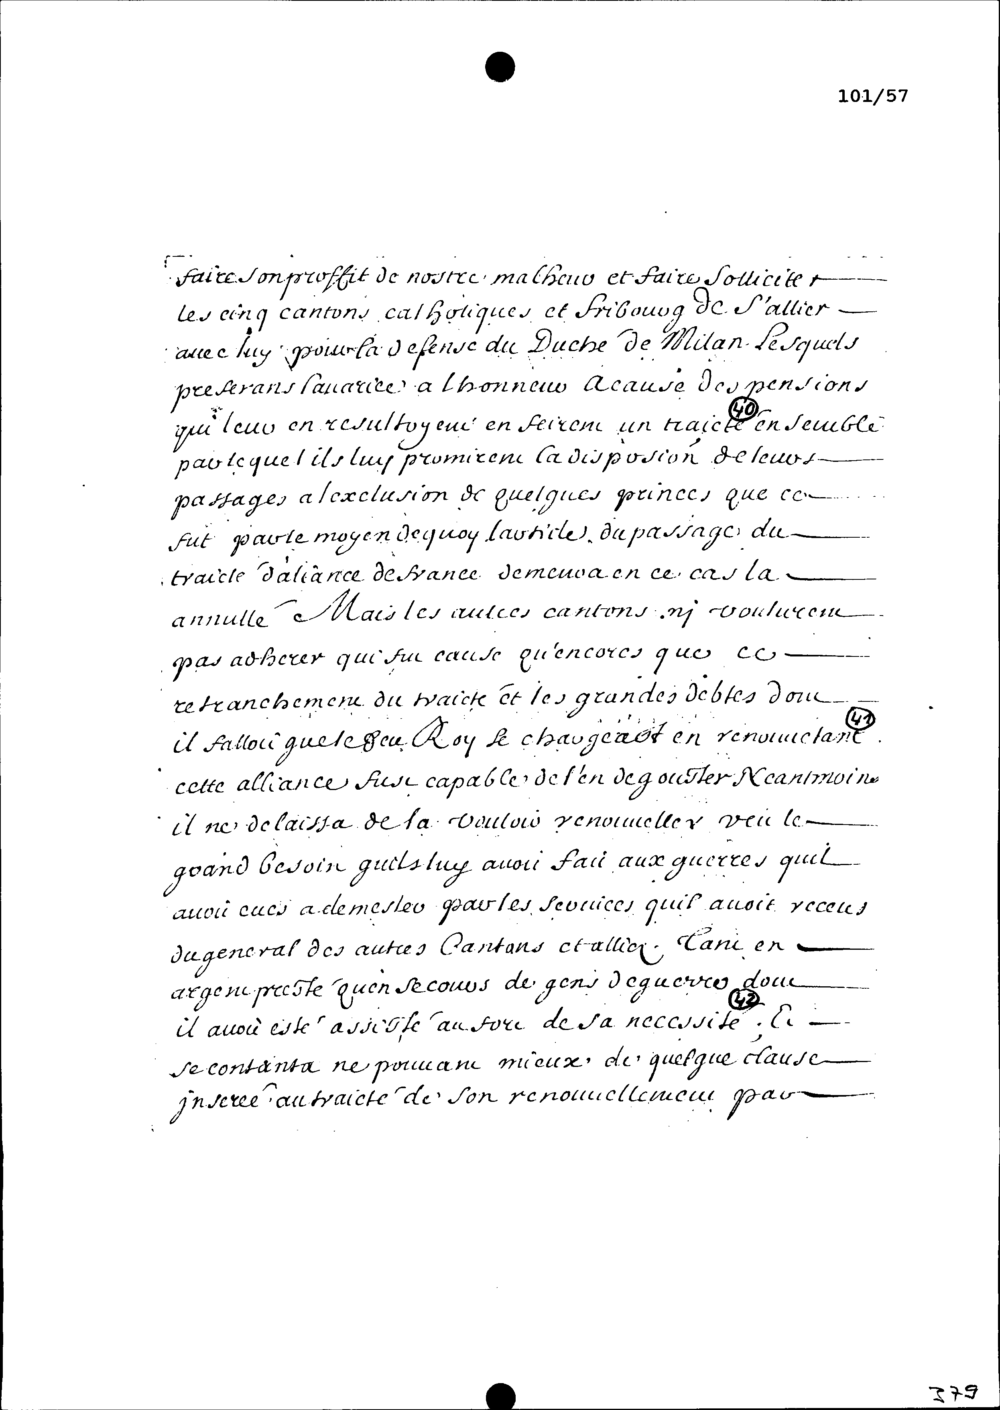 101/57
faire son proffit de nostre malheur et faire solliciter
les cinq cantons catholiques et fribourg de s'allier
auec luy pour la defense du Duche de Milan Lesquels
preferans lauarice a lhonneur acause des pensions
qui leur en resultoyent en feirent un traicte (40) ensemble
par lequel ils luy promirent la disposion de leurs
passages a lexclusion de quelques princes que ce
fut par le moyen dequoy larticle du passage du
traicte daliance de france demeura en ce cas la
annulle Mais les autres cantons nj voulurent
pas adherer qui fut cause qu'encores que ce
retranchement du traicte et les grandes debtes dont
il falloit que le feu Roy se chargeast en renouuelant (41)
cette alliance fust capable de l'en degouster Neantmoins
il ne delaissa de la vouloir renouueller veu le
grand besoin quils luy auoit fait aux guerres quil
auoit eues a demesler par les seruices quil auoit receus
du general des autres Cantons et alliez. Tant en
argent preste quen secours de gens de guerre dont
il auoit este assiste au fort de sa necessite (42). Et
se contanta ne pouuant mieux de quelque clause
jnseree au traicte de son renouuellement par
379